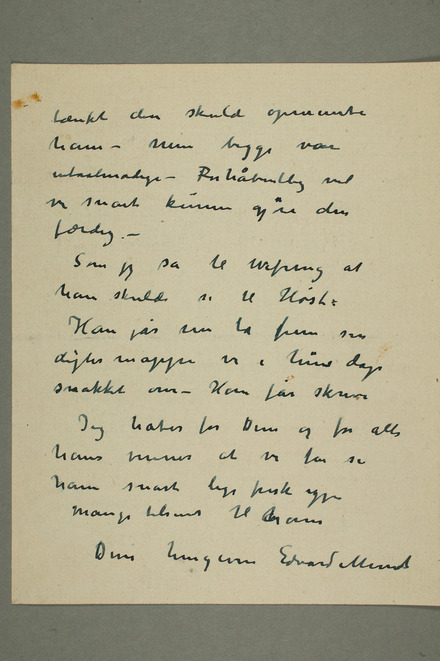 tænkt den skulde opmuntre
ham – men begge var
utaalmodige – Forhåbentlig vil
vi snart kunne gjøre den
færdig. –
Som jeg sa til at
han skulde se til Høst:
Han får nu ta frem sin
digtermappe vi i hine dage
snakket om – Han får skrive
Jeg håber for Dem og for alle
hans venner at vi får se
ham snart lige frisk igjen
Mange hilsener til ham
Deres hengivne Edvard Munch